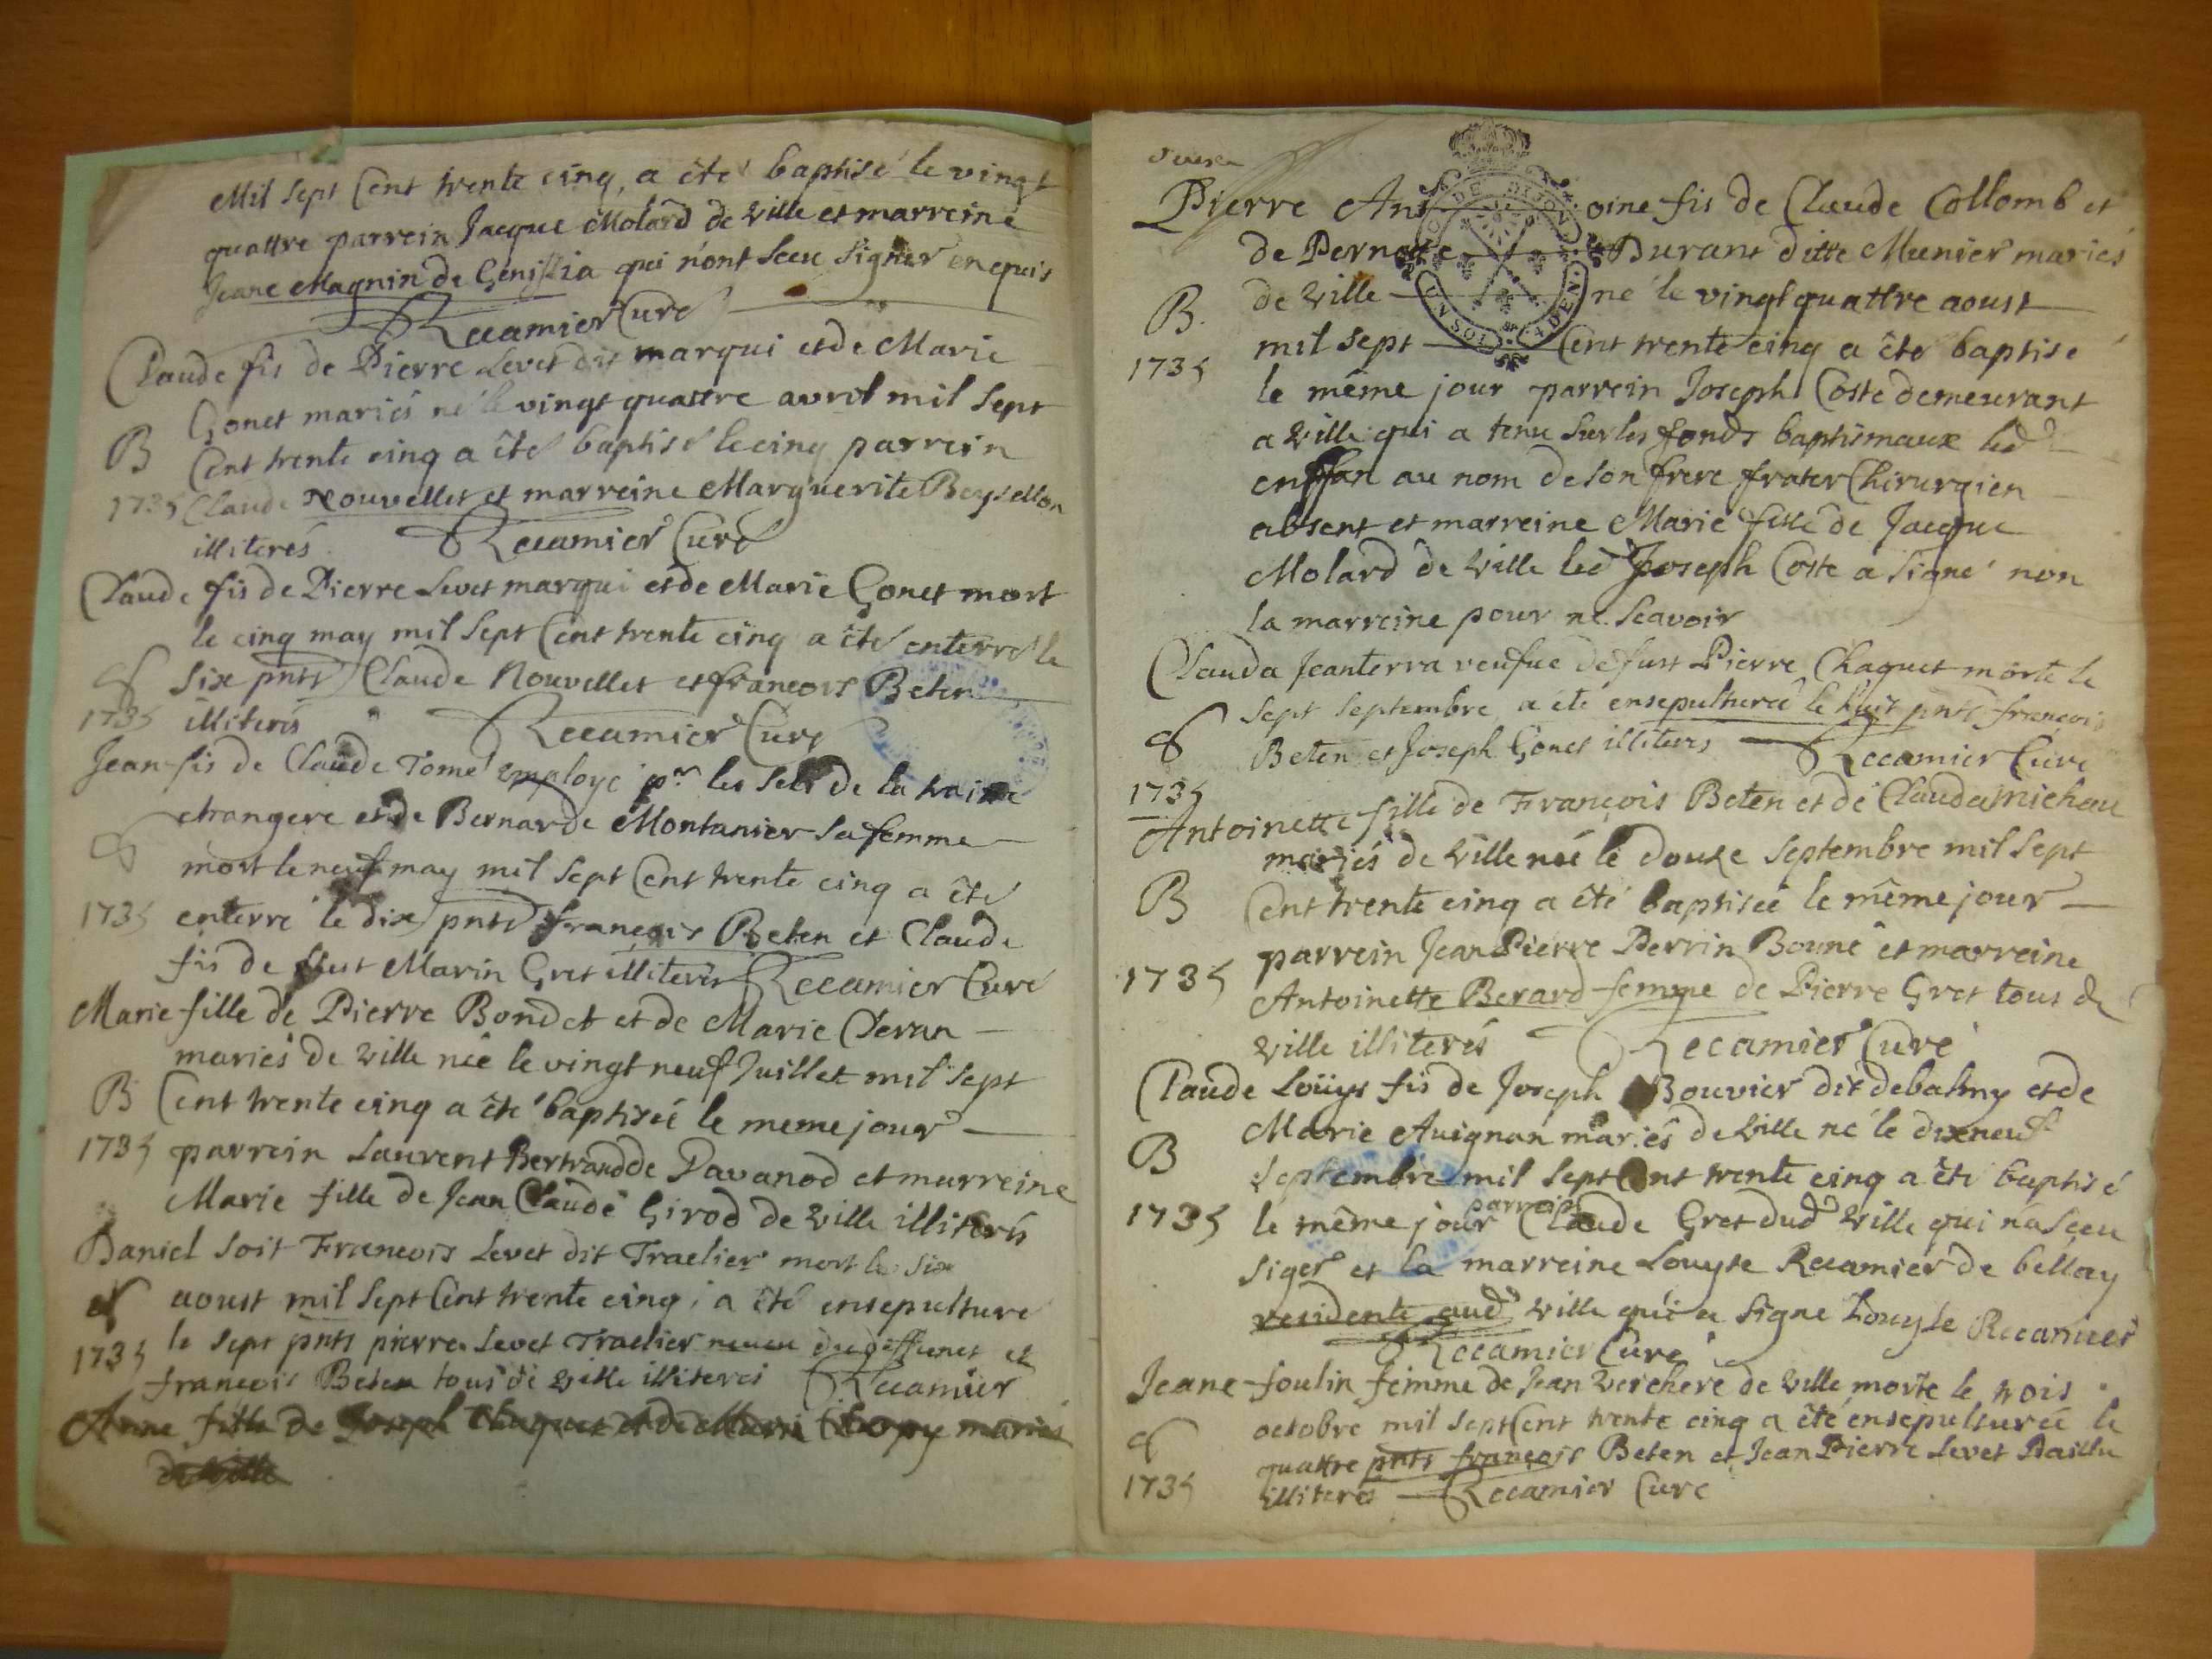 Mil sept Cent trente cinq, a êté baptisé le vingt
quattre parrein Jacque Molard de ville et marreine
Jeane Magnin de Genissia qui n'ont sceu signer enquis
Recamier Curé
Claude fis de Pierre Levet dit marqui et de Marie
Gonet mariés né le vingt quattre avril mil sept
B Cent trente cinq a êté baptisé le cinq parrein
1735 Claude Nouvellet et marreine Marguerite Beyssellon
illiterés Recamier Curé
Claude fis de Pierre Levet marqui et de Marie Gonet mort
le cinq may mil sept Cent trente cinq a êté enterré le
six pnts Claude Nouvellet et francois Beten
1735 illiterés Recamier Curé
Jean fis de Claude Tome employé pr les sels de la traitte
etrangere et de Bernarde Montanier sa femme
mort le neuf may mil sept Cent trente cinq a êté
1735 enterré le dix pnts françois Beten et Claude
fis de fust Marin Gret illiterés Recamier Curé
Marie fille de Pierre Bondet et de Marie Cleran
mariés de ville née le vingt neuf Juillet mil sept
B Cent trente cinq a êté baptisée le meme jour
1735 parrein Laurent Bertrand de Pavanod et marreine
Marie fille de Jean Claude Girod de ville illiterés
Daniel soit Francois Levet dit Traclier mort le six
aoust mil sept Cent trente cinq, a êté ensepulture
1735 le sept pnts pierre Levet Traclier neveu du deffunct et
francois Beten tous de ville illiterés Recamier
Anne fille de Joseph Chaquet et de Marie mariés
de ville
Pierre Antoine fis de Claude Collomb et
de Pernette Durant ditte Munier mariés
B. de ville né le vingt quattre aoust
1735 mil sept Cent trente cinq a êté baptisé
le même jour parrein Joseph Coste demeurant
a ville qui a tenu sur les fonds baptismaux led
enffan au nom de son frere frater Chirurgien
absent et marreine Marie fille de Jacque
Molard de ville led Joseph Coste a signé non
la marreine pour ne scavoir
Clauda Jeanterra veufue de fust Pierre Chaquet morte le
sept septembre a été ensepulturée le huit pnts françois
Beten et Joseph Gonet illiterés Recamier Curé
1735
Antoinette fille de François Beten et de Clauda Michau
mariés de ville née le douze septembre mil sept
B Cent trente cinq a êté baptisée le même jour
1735 parrein Jean Pierre Perrin Bonne et marreine
Antoinette Berard femme de Pierre Gret tous de
ville illiterés Recamier Curé
Claude Loüys fis de Joseph Bouvier dit debalmy et de
Marie Auignan mariés de ville né le dixneuf
B septembre mil sept Cent trente cinq a êté baptisé
1735 le même jour parrein Claude Gret dud ville qui n'a sceu
siger et la marreine Louyse Recamier de bellay
residente aud ville qui a signe Louyse Recamier
Recamier Curé
Jeane foulin femme de Jean Verchere de ville morte le trois
octobre mil sept Cent trente cinq a êté ensepulturée le
quattre pnts françois Beten et Jean Pierre Levet Paillu
1735 illiterés Recamier Curé